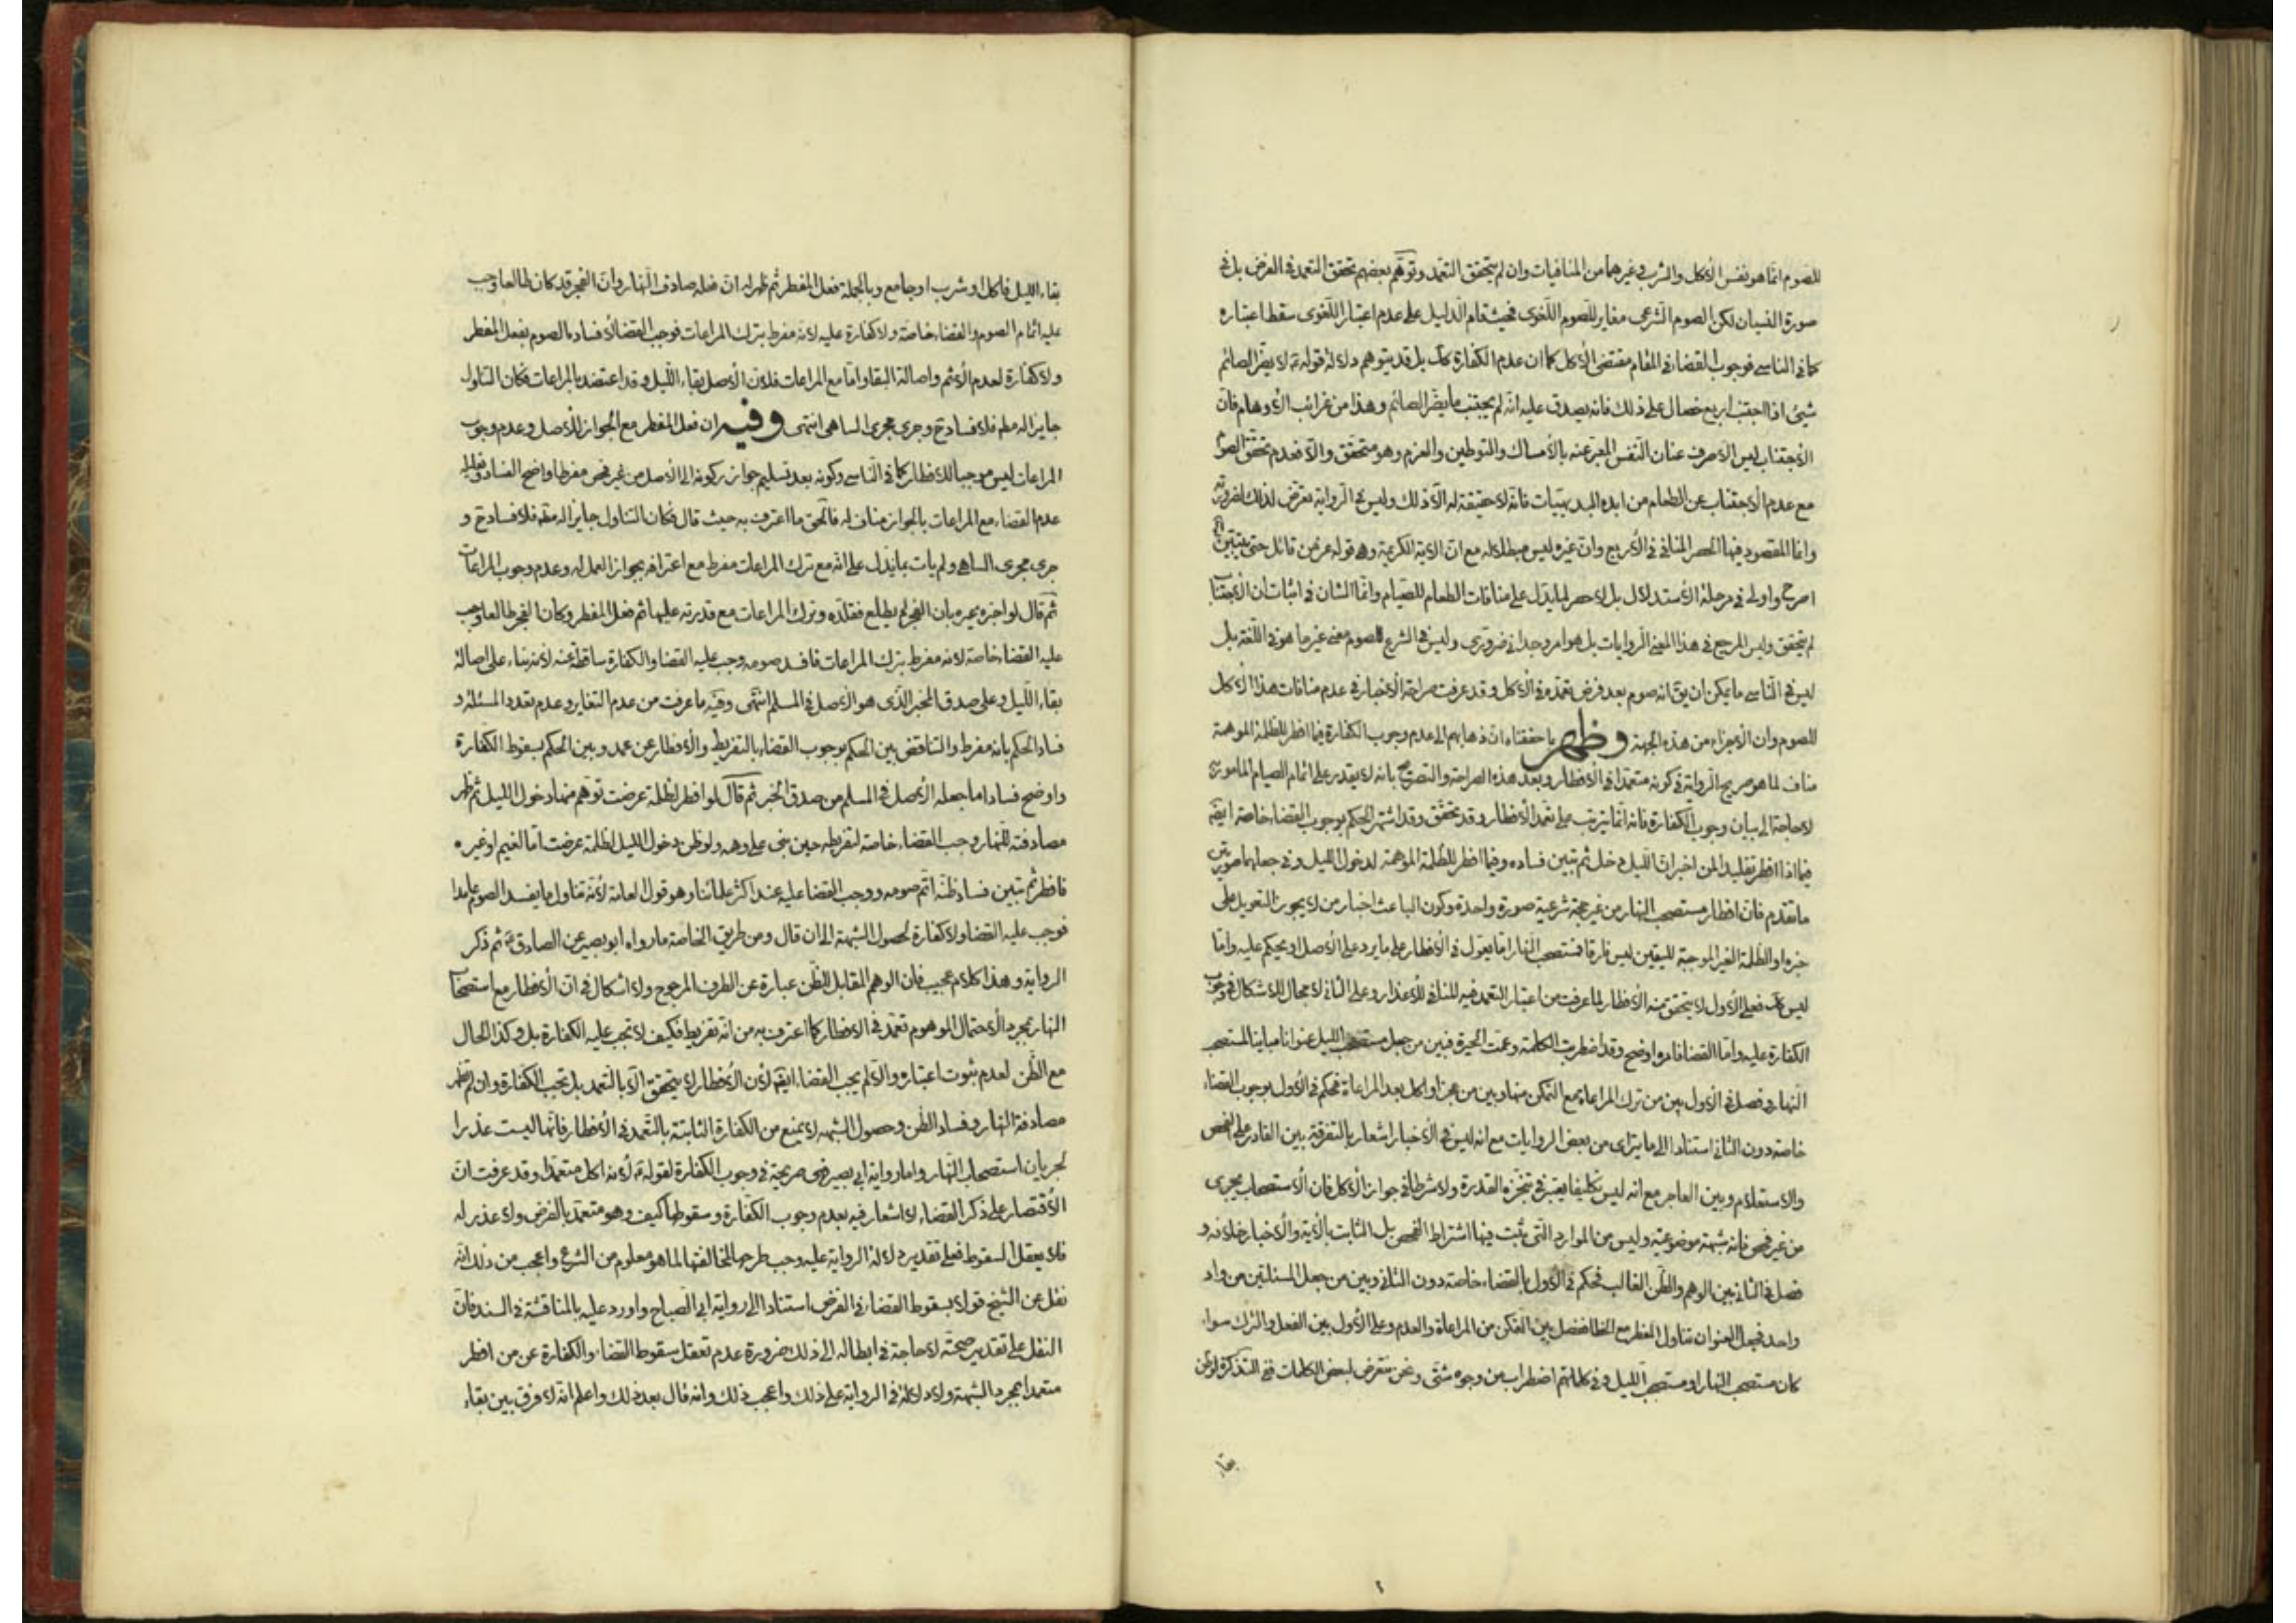 للصوم انما هو نفس الأكل والشرب وغيرهما من المنافيات وان لم يتحقق التعمد وتوهم بعضهم تحقق التعمد في الفرض بل في
صورة النسيان لكن الصوم الشرعى مغاير للصوم اللغوى فحيث قام الدليل على عدم اعتبار اللغوى سقط اعتباره
كما في الناسى فوجوب القضاء في المقام مقتضى الأكل كما ان عدم الكفارة كك بل قد يتوهم دلالة قوله ع لا يضر الصائم
شيئ اذا اجتنب اربع خصال على ذلك فانه يصدق عليه انه لم يجتنب ما يضر الصائم وهذا من غرائب الأوهام فان
الأجتناب ليس الا صرف عنان النفس المعبر عنه بالأمساك والتوطين والعزم وهو متحقق والا فعدم تحقق الصوم
مع عدم الأجتناب عن الطعام من ابده البديهيات فانه لا حقيقة له الا ذلك وليس في الرواية تعرض لذلك لضرورته
وانما المقصود فيها الحصر المنافى في الأربع وان غيره ليس مبطلا له مع ان الآية الكريمة وهو قوله عز من قائل حتى يتبين
اصرح واولى في مرحلة الأستدلال بل لا حصر لما يدل على منافات الطعام للصيام وانما الشان في اثبات ان الأجتناب
لم يتحقق وليس المرجع في هذا المعنى الروايات بل هو امر وجدانى ضرورى وليس في الشرع للصوم معنى غير ما هو في اللغة بل
ليس في الناسى ما يمكن ان يق انه صوم بعد فرض تعمده في الأكل وقد عرفت صراحة الأخبار في عدم منافات هذا الأكل
للصوم وان الأجزاء من هذه الجهة وظهر بما حققناه ان ذهابهم الى عدم وجوب الكفارة فيما افطر للظلمة الموهمة
مناف لما هو صريح الرواية في كونه متعمدا في الافطار وبعد هذه الصراحة والتصريح بانه لا يقدر على اتمام الصيام المامور به
لا حاجة الى بيان وجوب الكفارة فانه انما يترتب على تعمد الأفطار وقد تحقق وقد اشتهر الحكم بوجوب القضاء خاصة ايضا
فيما اذا افطر تقليدا لمن اخبر ان الليل دخل ثم تبين فساده وفيما افطر للظلمة الموهمة لدخول الليل وفي جعلهما صورتين
ما تقدم فان افطار مستصحب النهار من غير حجة شرعية صورة واحدة وكون الباعث اخبار من لا يجوز التعويل على
خبره او الظلمة الغير الموجبة لليقين ليس فارقا فمستصحب النهار اما يعول في الافطار على ما يرد على الأصل او يحكم عليه واما
ليس كك فعلى الأول لا يتحقق منه الأفطار لما عرفت من اعتبار التعمد فيه المنافى للأعذار وعلى الثانى لا مجال للأشكال في وجوب
الكفارة عليه واما القضا فامره اوضح وقد اضطربت الكلمة وعمت الحيرة فبين من جعل مستصحب الليل عنوانا مباينا لمستصحب
النهار وفصل في الأول بين من ترك المراعاة مع التمكن منها وبين من عجز او اكل بعد المراعاة فحكم في الأول بوجوب القضاء
خاصة دون الثانى استنادا الى ما يترائى من بعض الروايات مع انه ليس في الأخبار اشعار بالتفرقة بين القادر على الفحص
والاستعلام وبين العاجز مع انه ليس تكليفا يعتبر في تنجزه القدرة ولا شرطا في جواز الأكل فان الأستصحاب يجرى
من غير فحص فانه شبهة موضوعية وليس من الموارد التى يثبت فيها اشتراط الفحص بل الثابت بالآية والأخبار خلافه و
فصل في الثانى بين الوهم والظن الغالب فحكم في الأول بالقضاء خاصة دون الثانى وبين من جعل المسئلتين من واد
واحد فجعل العنوان تناول المفطر مع الخطا ففصل بين التمكن من المراعاة والعدم وعلى الأول بين الفعل والترك سواء
كان مستصحب النهار او مستصحب الليل وفي كلماتهم اضطراب من وجوه شتى ونحن نتعرض لبعض الكلمات ففي التذكرة لو ظن
بقاء
بقاء الليل فاكل او شرب او جامع وبالجملة فعل المفطر ثم ظهر له ان فعله صادف النهار وان الفجر قد كان طالعا وجب
عليه اتمام الصوم والقضاء خاصة ولا كفارة عليه لانه مفرط بترك المراعات فوجب القضا لأفساده الصوم بفعل المفطر
ولا كفارة لعدم الأثم واصالة البقا واما مع المراعات فلان الأصل بقاء الليل وقد اعتضد بالمراعات فكان التناول
جايزا له مطم فلا فساد ح وجرى مجرى الساهى انتهى وفيه ان فعل المفطر مع الجواز للأصل وعدم وجوب
المراعات ليس موجبا للافطار كما في الناسى وكونه بعد تسليم جواز ركونه الى الأصل من غير فحص مفرطا واضح الفساد وتعليله
عدم القضاء مع المراعات بالجواز مناف له فالحق ما اعترف به حيث قال فكان التناول جايزا له مطم فلا فساد ح و
جرى مجرى الساهى ولم يات بما يدل على انه مع ترك المراعات مفرط مع اعترافه بجواز العمل له وعدم وجوب المراعات
ثم قال لو اخبره مخبر بان الفجر لم يطلع فقلده وترك المراعات مع قدرته عليها ثم فعل المفطر وكان الفجر طالعا وجب
عليه القضاء خاصة لانه مفرط بترك المراعات فافسد صومه وجب عليه القضا والكفارة ساقطة عنه لأنه بناء على اصالة
بقاء الليل وعلى صدق المخبر الذى هو الأصل في المسلم انتهى وفيه ما عرفت من عدم التغاير وعدم تعدد المسئلة و
فساد الحكم بانه مفرط والتناقض بين الحكم بوجوب القضاء بالتفريط والأفطار عن عمد وبين الحكم بسقوط الكفارة
واوضح فسادا ما جعله الأصل في المسلم من صدق الخبر ثم قال لو افطر لظلمة عرضت توهم منها دخول الليل ثم ظهر
مصادفته للنهار وجب القضاء خاصة لتفريطه حين بنى على وهمه ولو ظن دخول الليل لظلمة عرضت اما الغيم او غيره
فافطر ثم تبين فساد ظنه اتم صومه ووجب القضا عليه عند اكثر علمائنا وهو قول العامة لأنه تناول ما يفسد الصوم عامدا
فوجب عليه القضا ولا كفارة لحصول الشبهة الى ان قال ومن طريق الخاصة ما رواه ابو بصير عن الصادق ع ثم ذكر
الرواية وهذا كلام عجيب فان الوهم المقابل للظن عبارة عن الطرف المرجوح ولا اشكال في ان الأفطار مع استصحاب
النهار بمجرد الأحتمال الموهوم تعمد في الافطار كما اعترف به من انه تفريط فكيف لا تجب عليه الكفارة بل وكذا الحال
مع الظن لعدم ثبوت اعتباره والا لم يجب القضاء ايضا لأن الأفطار لا يتحقق الا بالتعمد بل تجب الكفارة وان لم تظهر
مصادفة النهار وفساد الظن وحصول الشبهه لا يمنع من الكفارة الثابتة بالتعمد في الأفطار فانها ليست عذرا
لجريان استصحاب النهار واما رواية ابى بصير فهى صريحة في وجوب الكفارة لقوله ع لأنه اكل متعمدا وقد عرفت ان
الأقتصار على ذكر القضاء لا اشعار فيه بعدم وجوب الكفارة وسقوطها كيف وهو متعمد بالفرض ولا عذر له
فلا يعقل السقوط فعلى تقدير دلالة الرواية عليه وجب طرحها لمخالفتها لما هو معلوم من الشرع واعجب من ذلك انه
نقل عن الشيخ قولا بسقوط القضاء في الفرض استنادا الى رواية ابى الصباح واورد عليه بالمناقشة في السند فان
النقل على تقدير صحته لا حاجة في ابطاله الى ذلك ضرورة عدم تعقل سقوط القضاء والكفارة عن من افطر
متعمدا بمجرد الشبهة ولا دلالة في الرواية على ذلك واعجب من ذلك وانه قال بعد ذلك واعلم انه لا فرق بين بقاء